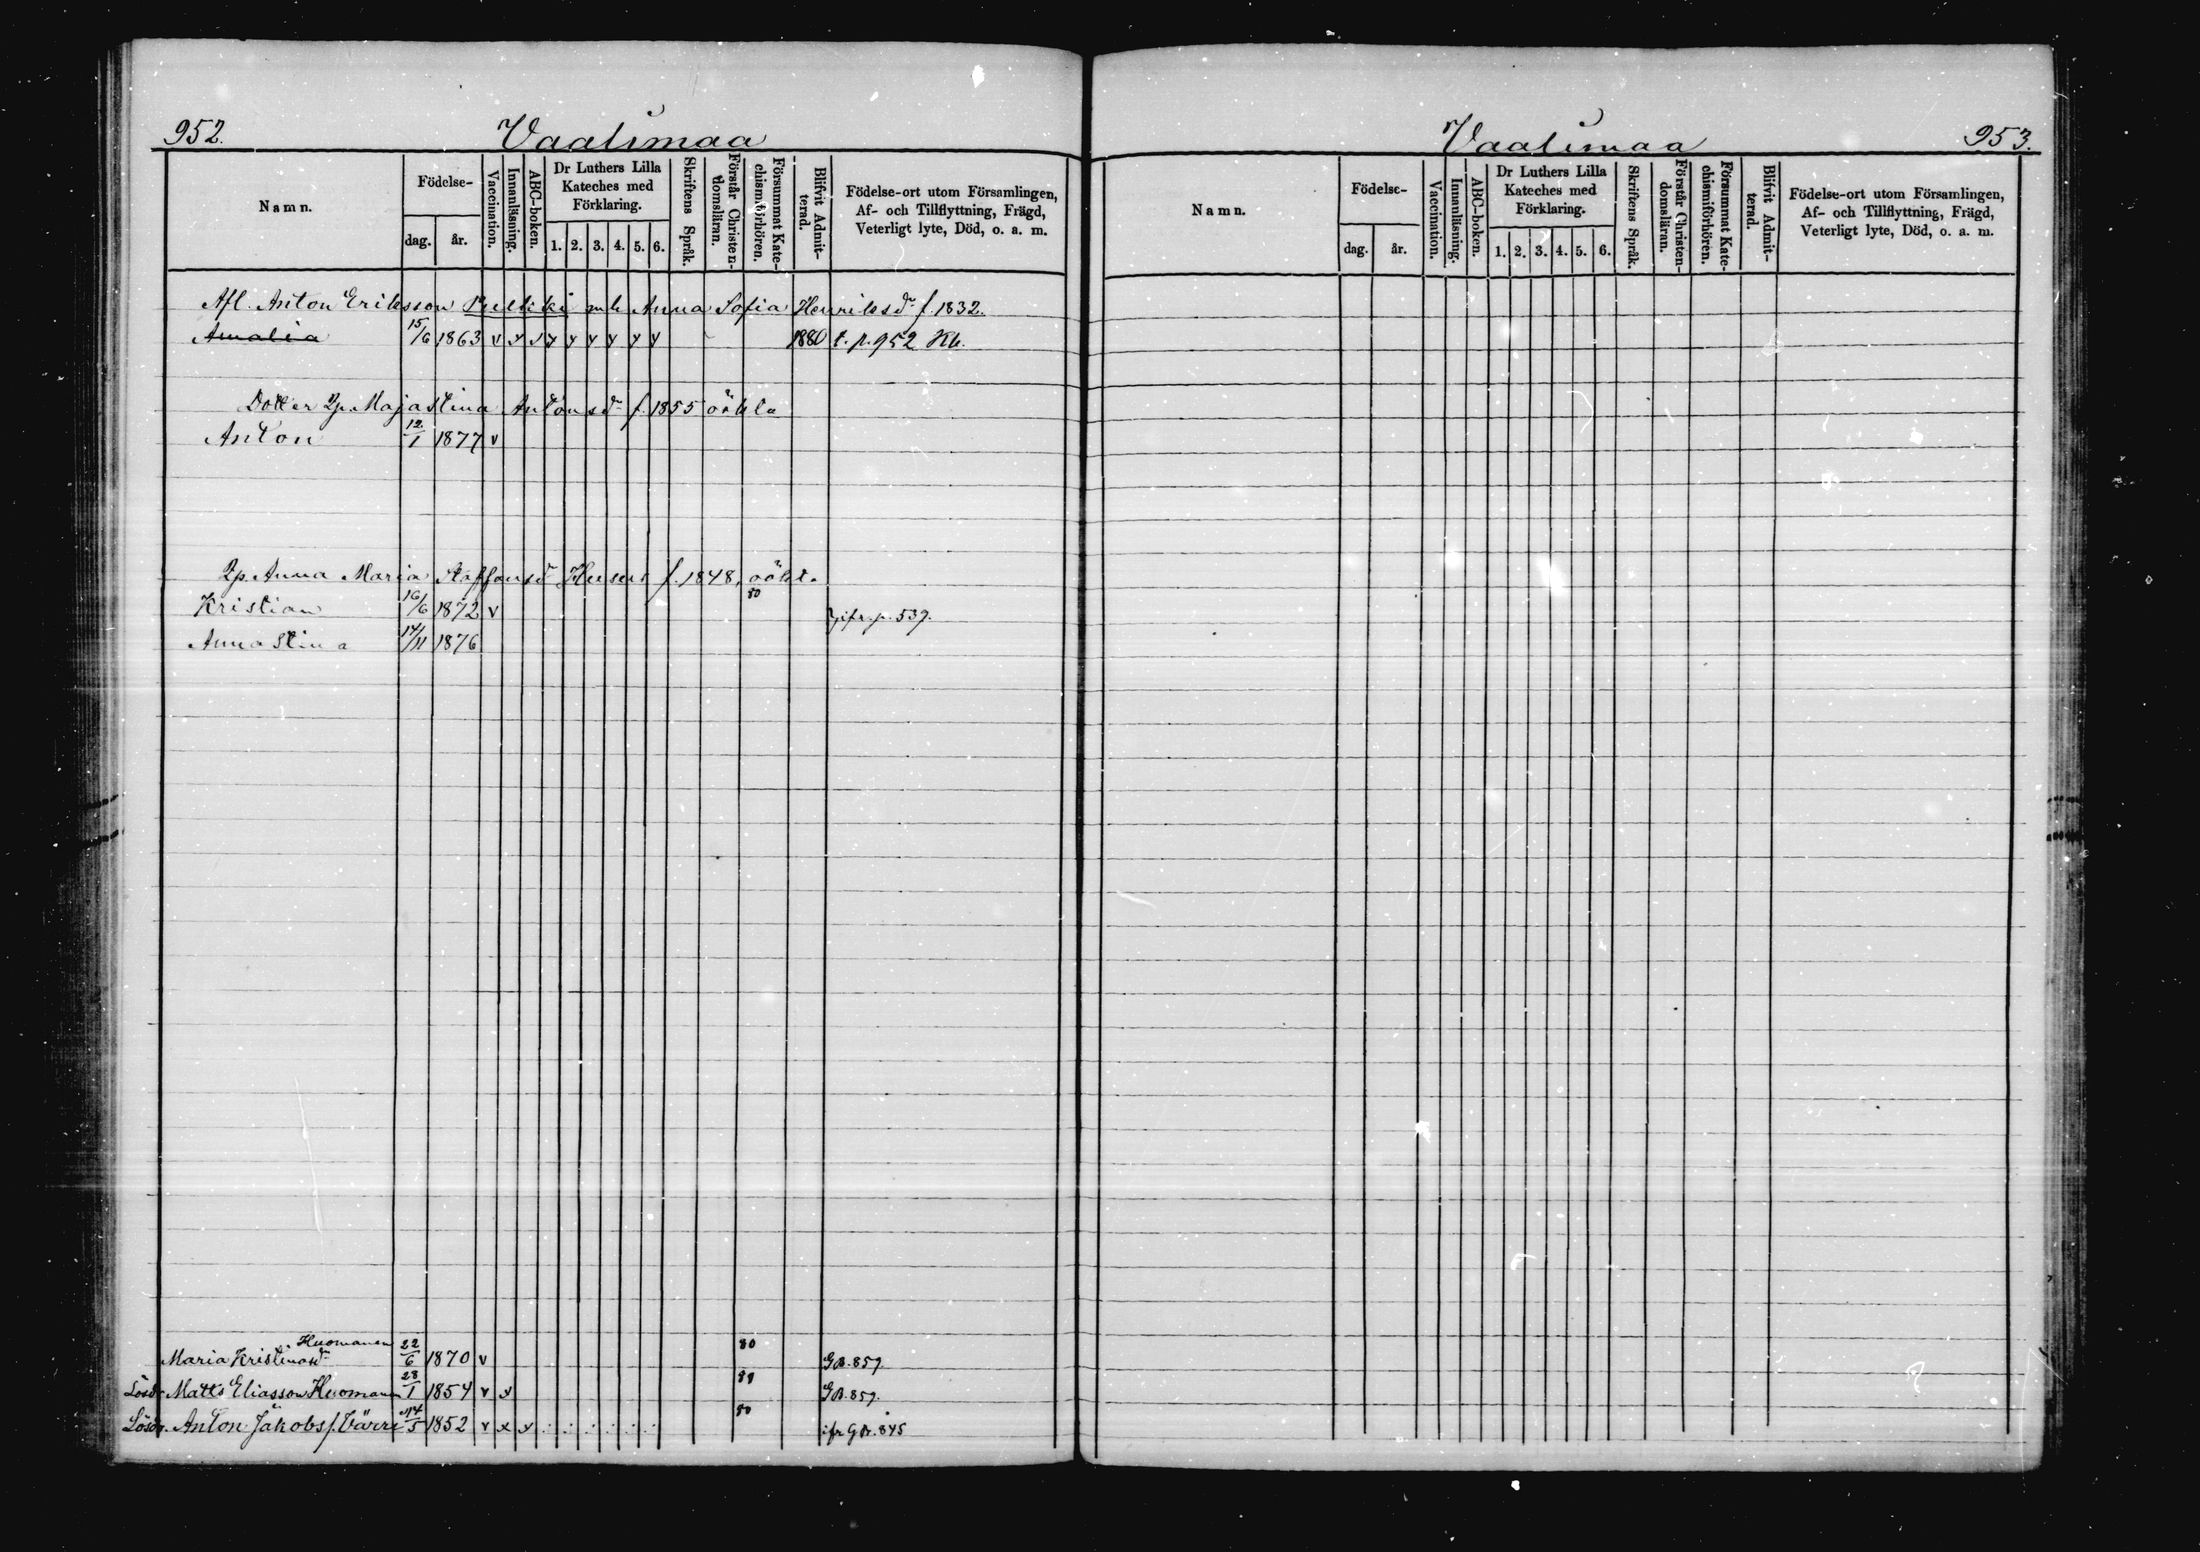 952. Vaalimaa
Namn.
Födelse-
dag. år.
Vaccination.
Innanläsning.
ABC-boken.
Dr Luthers Lilla Kateches med Förklaring.
1. 2. 3. 4. 5. 6.
Skriftens Språk.
Förstår Christendomsläran.
Försummat Katechismiförhören.
Blifvit Admitterad.
Födelse-ort utom Församlingen,
Af- och Tillflyttning, Frägd,
Veterligt lyte, Död, o. a. m.
Afl. Anton Eriksson Pulliki mh Anna Sofia Henriksdr f. 1832.
Amalia 15/6 1863 v y y y y y y y y 1880 t. p. 952 Kb.
Dotter Qp. Majastina Antonsdr f. 1855 oäkta
Anton 12/1 1877 v
Qp. Anna Maria Staffansd f. 1848, oäkt.
Kristian 16/6 1872 v 80 ifr. p. 539.
Anna Stina 14/11 1876
Huomanen
Maria Kristinasdr 22/6 1870 v 80 GB. 859.
Lösdr Matts Eliasson Huomanen 28/1 1854 v y GB. 859.
Lösdr. Anton Jakobss. Värri 14/5 1852 v x y 80 ifr GB. 845
Vaalimaa 953.
Namn.
Födelse-
dag. år.
Vaccination.
Innanläsning.
ABC-boken.
Dr Luthers Lilla Kateches med Förklaring.
1. 2. 3. 4. 5. 6.
Skriftens Språk.
Förstår Christendomsläran.
Försummat Katechismiförhören.
Blifvit Admitterad.
Födelse-ort utom Församlingen,
Af- och Tillflyttning, Frägd,
Veterligt lyte, Död, o. a. m.